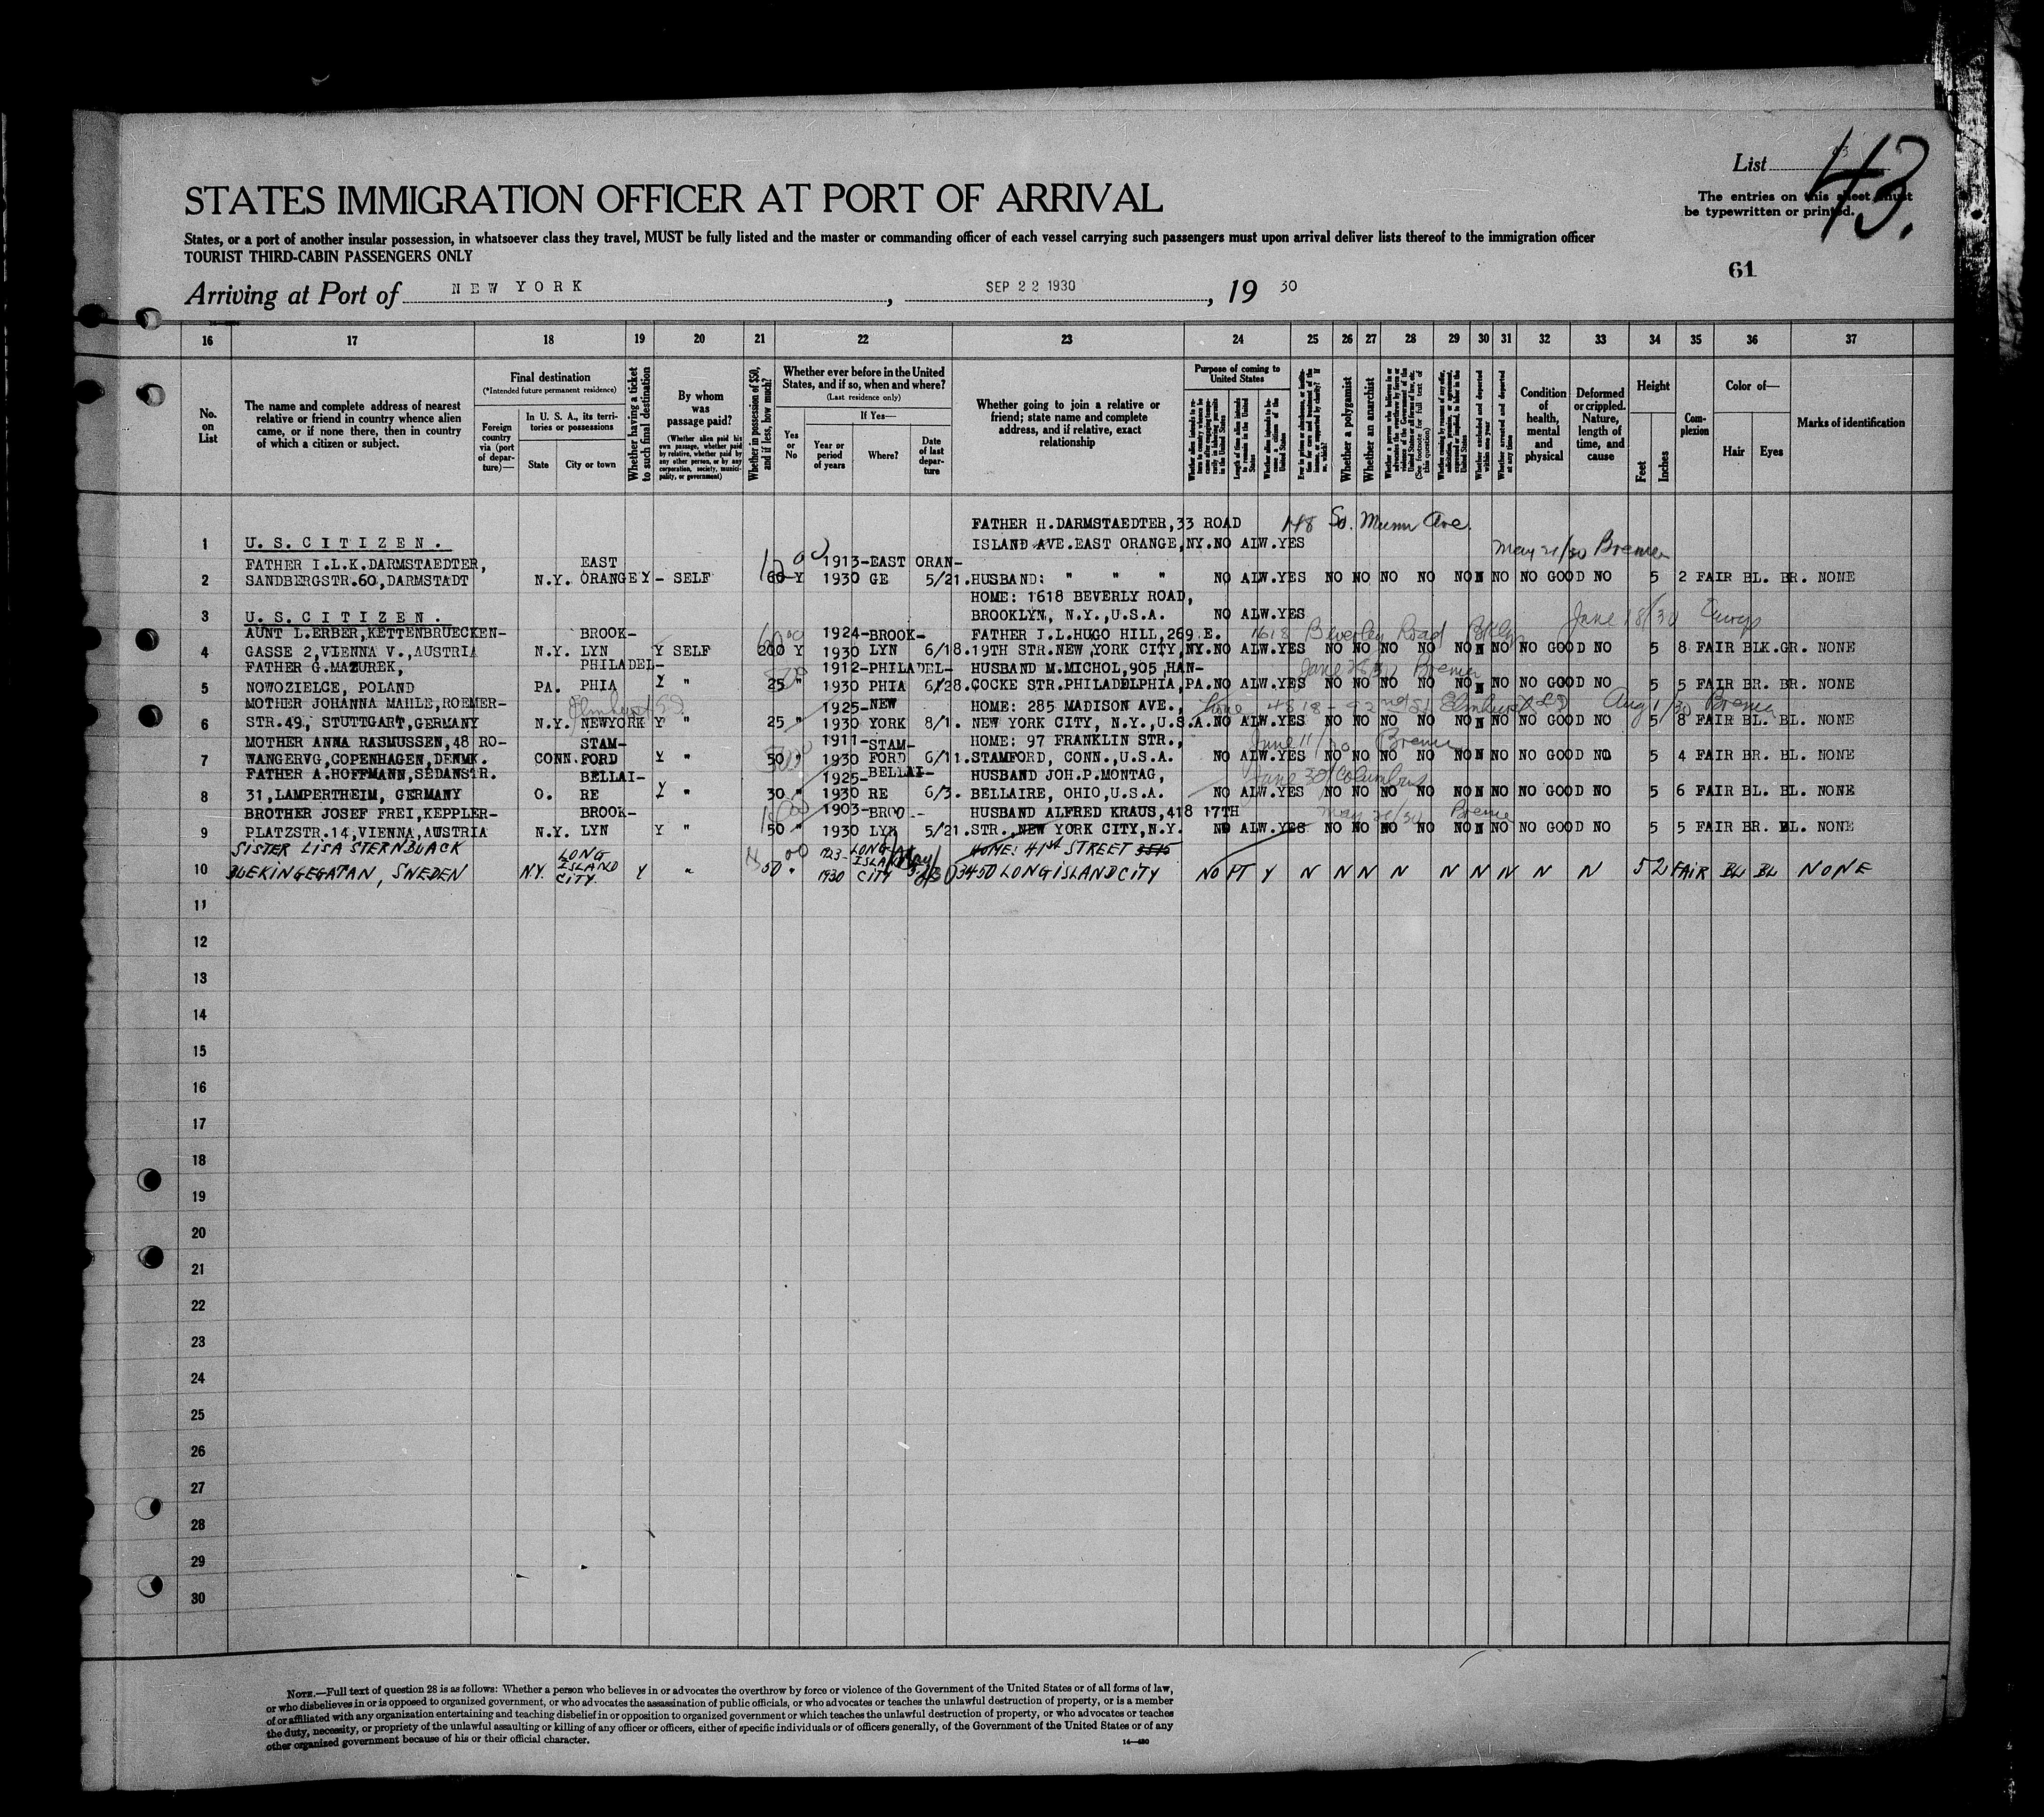 List 43
43.
The entries on this sheet must
be typewritten or printed.
STATES IMMIGRATION OFFICER AT PORT OF ARRIVAL
States, or a port of another insular possession, in whatsoever class they travel, MUST be fully listed and the master or commanding officer of each vessel carrying such passengers must upon arrival deliver lists thereof to the immigration officer
TOURIST THIRD-CABIN PASSENGERS ONLY
61
Arriving at Port of NEW YORK, SEP 22 1930, 19 30
16 17 18 19 20 21 22 23 24 25 26 27 28 29 30 31 32 33 34 35 36 37
No. on List
The name and complete address of nearest
relative or friend in country whence alien
came, or if none there, then in country
of which a citizen or subject.
Final destination
(*Intended future permanent residence)
Foreign country via (port of departure)—
In U. S. A., its territories or possessions
State
City or town
Whether having a ticket to such final destination
By whom was passage paid?
(Whether alien paid his own passage, whether paid by relative, whether paid by any other person, or by any corporation, society, municipality, or government)
Whether in possession of $50, and if less, how much?
Whether ever before in the United States, and if so, when and where?
(Last residence only)
Yes or No
If Yes—
Year or period of years
Where?
Date of last departure
Whether going to join a relative or
friend; state name and complete
address, and if relative, exact
relationship
Purpose of coming to United States
Whether a polygamist
Whether an anarchist
Whether arrested and deported at any time
Condition of health, mental and physical
Deformed or crippled. Nature, length of time, and cause
Height
Feet
Inches
Complexion
Color of—
Hair
Eyes
Marks of identification
FATHER H.DARMSTAEDTER,33 ROAD 148 So. Munn Ave.
1 U.S.CITIZEN. ISLAND AVE.EAST ORANGE,NY. NO ALW.YES
May 21/30 Bremen
FATHER I.L.K.DARMSTAEDTER, EAST 1913-EAST ORAN-
2 SANDBERGSTR.60,DARMSTADT N.Y. ORANGE Y- SELF 60 Y 1930 GE 5/21. HUSBAND: " " " NO ALW.YES NO NO NO NO NO N NO NO GOOD NO 5 2 FAIR BL. BR. NONE
HOME: 1618 BEVERLY ROAD,
3 U.S.CITIZEN. BROOKLYN, N.Y.,U.S.A. NO ALW.YES
June 18/30
AUNT L.ERBER,KETTENBRUECKEN- BROOK- 1924-BROOK- FATHER I.L.HUGO HILL,269 E. 1618 Beverley Road Bklyn
4 GASSE 2,VIENNA V.,AUSTRIA N.Y. LYN Y SELF 200 Y 1930 LYN 6/18. 19TH STR.NEW YORK CITY,NY. NO ALW.YES NO NO NO NO NO N NO NO GOOD NO 5 8 FAIR BLK.GR. NONE
FATHER G.MAZUREK, PHILADEL- 1912-PHILADEL- HUSBAND M.MICHOL,905 HAN- June 28/30 Bremen
5 NOWOZIELCE, POLAND PA. PHIA Y " 25 " 1930 PHIA 6/28. COCKE STR.PHILADELPHIA,PA. NO ALW.YES NO NO NO NO NO N NO NO GOOD NO 5 5 FAIR BR. BR. NONE
MOTHER JOHANNA MAHLE,ROEMER- Elmhurst 1925-NEW HOME: 285 MADISON AVE., 4818-92nd St Elmhurst Aug 1/30 Bremen
6 STR.49, STUTTGART,GERMANY N.Y. NEWYORK Y " 25 " 1930 YORK 8/1. NEW YORK CITY, N.Y.,U.S.A. NO ALW.YES NO NO NO NO NO N NO NO GOOD NO 5 8 FAIR BL. BL. NONE
MOTHER ANNA RASMUSSEN,48 RO- STAM- 1911-STAM- HOME: 97 FRANKLIN STR., June 11/30 Bremen
7 WANGERVG,COPENHAGEN,DENMK. CONN. FORD Y " 50 " 1930 FORD 6/11. STAMFORD, CONN.,U.S.A. NO ALW.YES NO NO NO NO NO N NO NO GOOD NO 5 4 FAIR BR. BL. NONE
FATHER A.HOFFMANN,SEDANSTR. BELLAI- 1925-BELLAI- HUSBAND JOH.P.MONTAG, June 30/Columbus
8 31,LAMPERTHEIM, GERMANY O. RE Y " 30 " 1930 RE 6/3. BELLAIRE, OHIO,U.S.A. NO ALW.YES NO NO NO NO NO N NO NO GOOD NO 5 6 FAIR BL. BL. NONE
BROTHER JOSEF FREI,KEPPLER- BROOK- 1903-BROO- HUSBAND ALFRED KRAUS,418 17TH May 21/30 Breme
9 PLATZSTR.14,VIENNA,AUSTRIA N.Y. LYN Y " 50 " 1930 LYN 5/21. STR.,NEW YORK CITY,N.Y. NO ALW.YES NO NO NO NO NO N NO NO GOOD NO 5 5 FAIR BR. BL. NONE
SISTER LISA STERNBLACK LONG ISLAND CITY. 1923- LONG ISLA HOME: 41st STREET 3515
10 BLEKINGEGATAN, SWEDEN N.Y. Y " 50 " 1930 CITY 3450 LONG ISLAND CITY NO PT Y N N N N N N N N N 5 2 FAIR BL BL NONE
11
12
13
14
15
16
17
18
19
20
21
22
23
24
25
26
27
28
29
30
NOTE.—Full text of question 28 is as follows: Whether a person who believes in or advocates the overthrow by force or violence of the Government of the United States or of all forms of law,
or who disbelieves in or is opposed to organized government, or who advocates the assassination of public officials, or who advocates or teaches the unlawful destruction of property, or is a member
of or affiliated with any organization entertaining and teaching disbelief in or opposition to organized government or which teaches the unlawful destruction of property, or who advocates or teaches
the duty, necessity, or propriety of the unlawful assaulting or killing of any officer or officers, either of specific individuals or of officers generally, of the Government of the United States or of any
other organized government because of his or their official character.
14—430